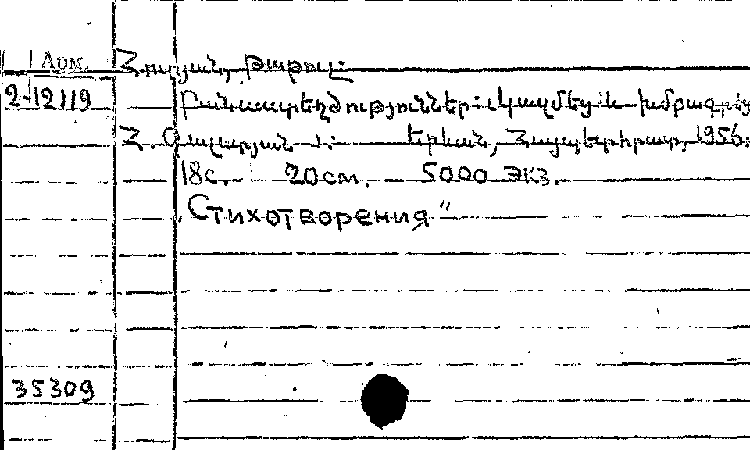 Арм. Հուրյան, Թաթուլ
2-12119 Բանաստեղծություններ: Կազմեց և խմբագրեց
Հ. Ղազարյան: Երևան, Հայպետհրատ, 1956.
18с. 20см. 5000 экз.
„Стихотворения"
35309